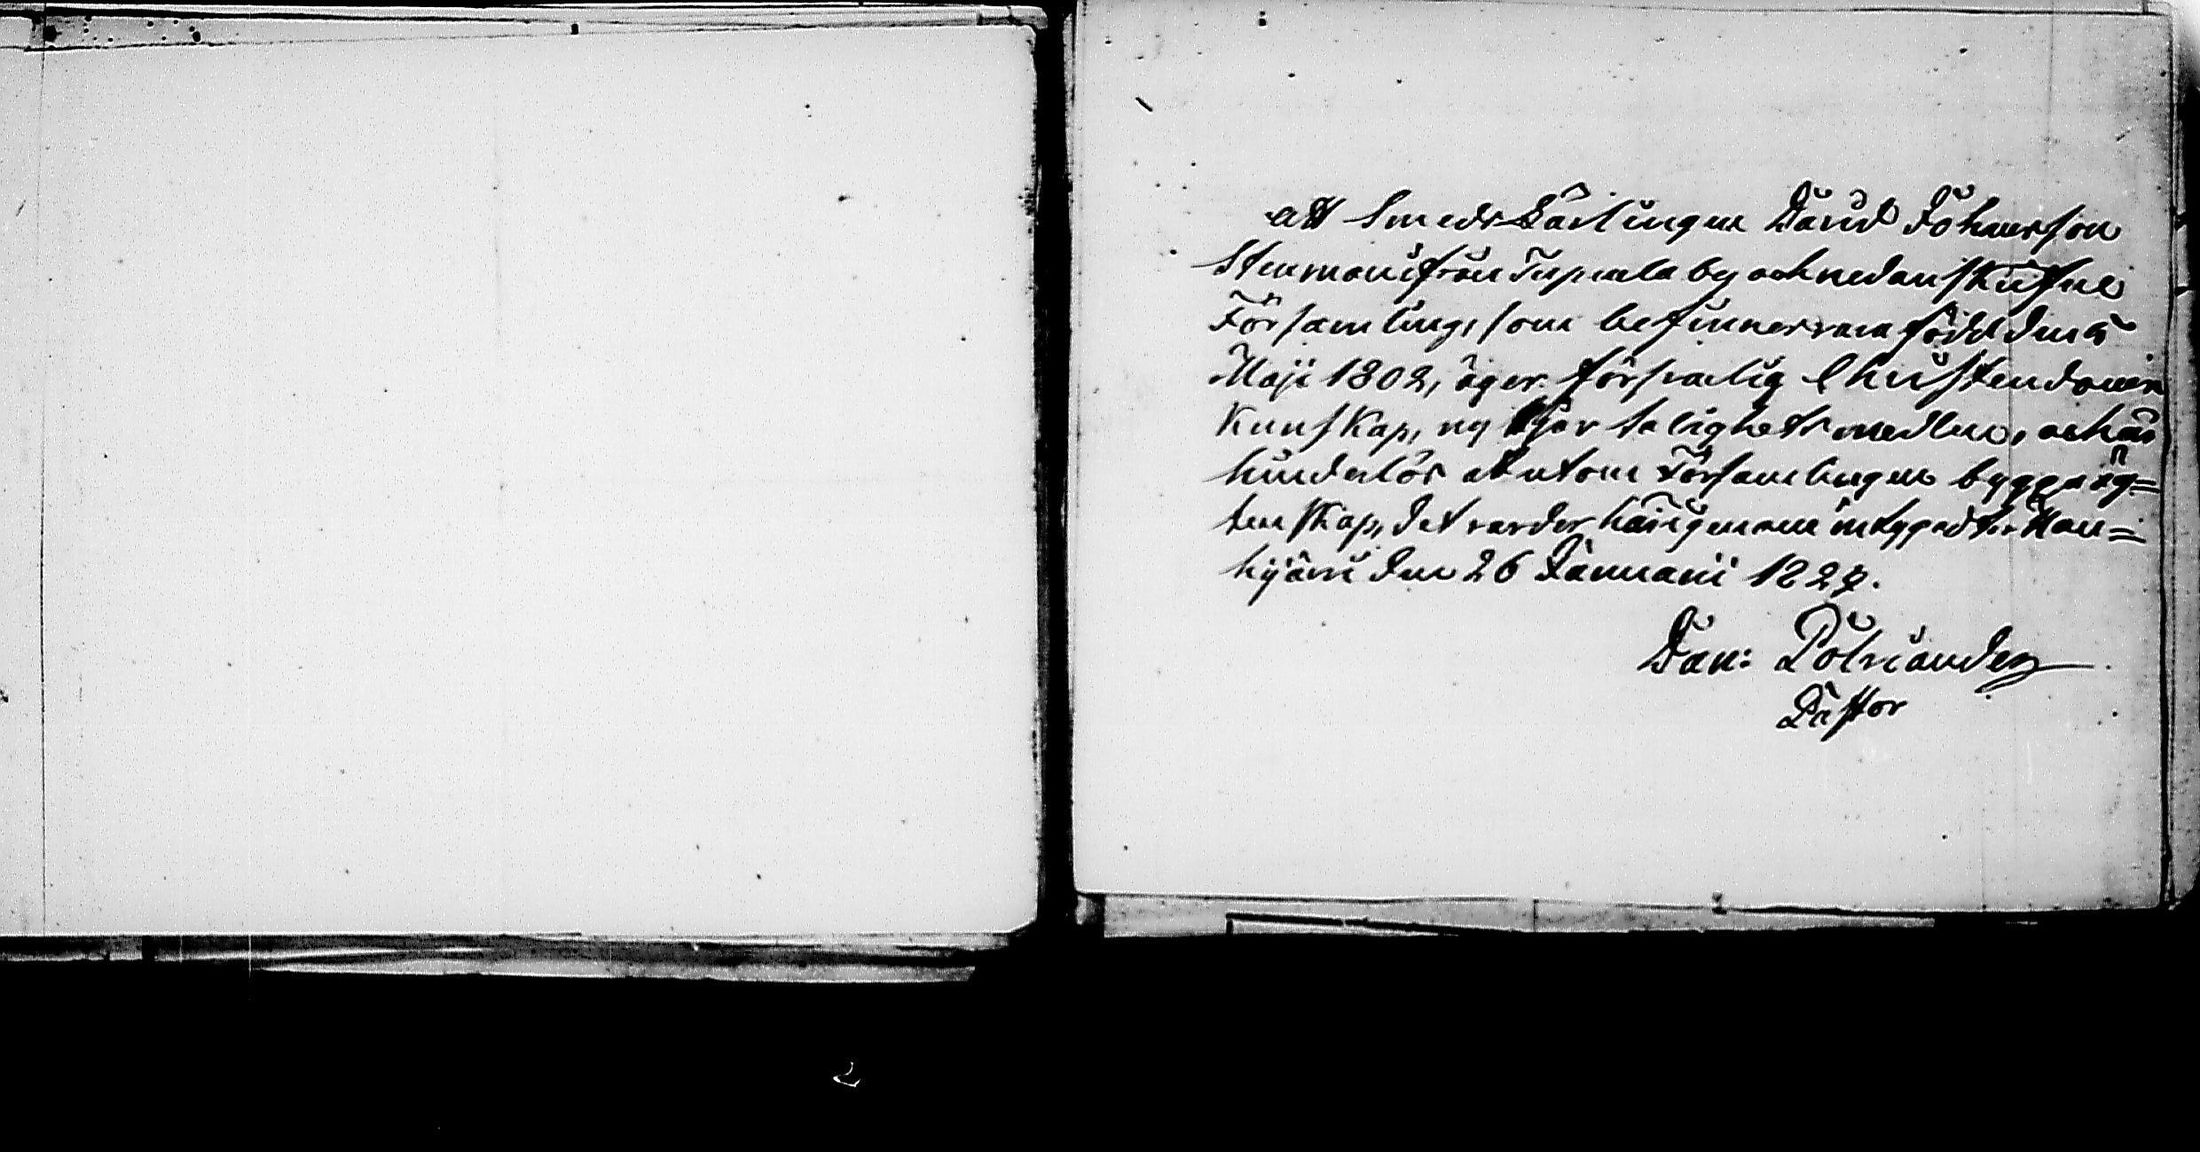 att Smeds Lärlingen David Johansson
Stenman ifrån Tupurla by och nedanskrifne
Församling, som befinnes vara född den 5
Maji 1802, äger försvarlig Christendoms
Kunskap, nyttjar salighets medlen, och är
hinderlös at utom Församlingen bygga äg=
tenskap, det varder härigenom intygadt. Kan=
hijärvi den 26 Januarii 1827.
Dan: Polviander
Pastor
2